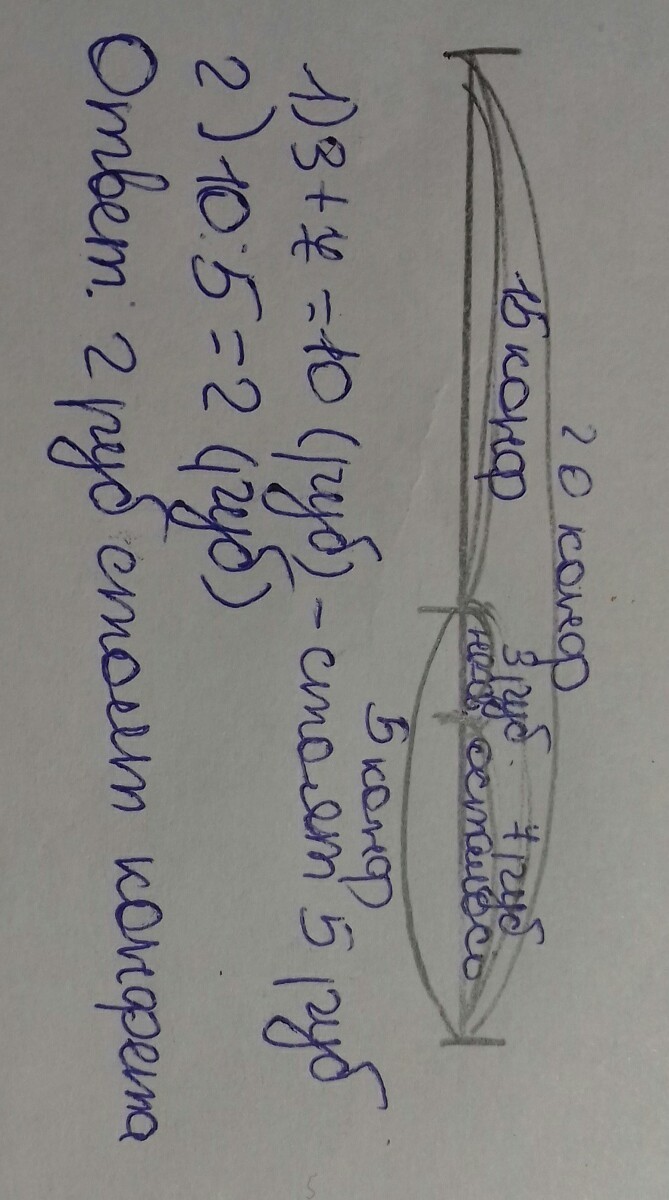 20 конф
15 конф
3 руб. 7 руб
надо осталось
5 конф
1) 3 + 7 = 10 (руб) - стоят 5 руб
2) 10 : 5 = 2 (руб)
Ответ: 2 руб стоит конфета